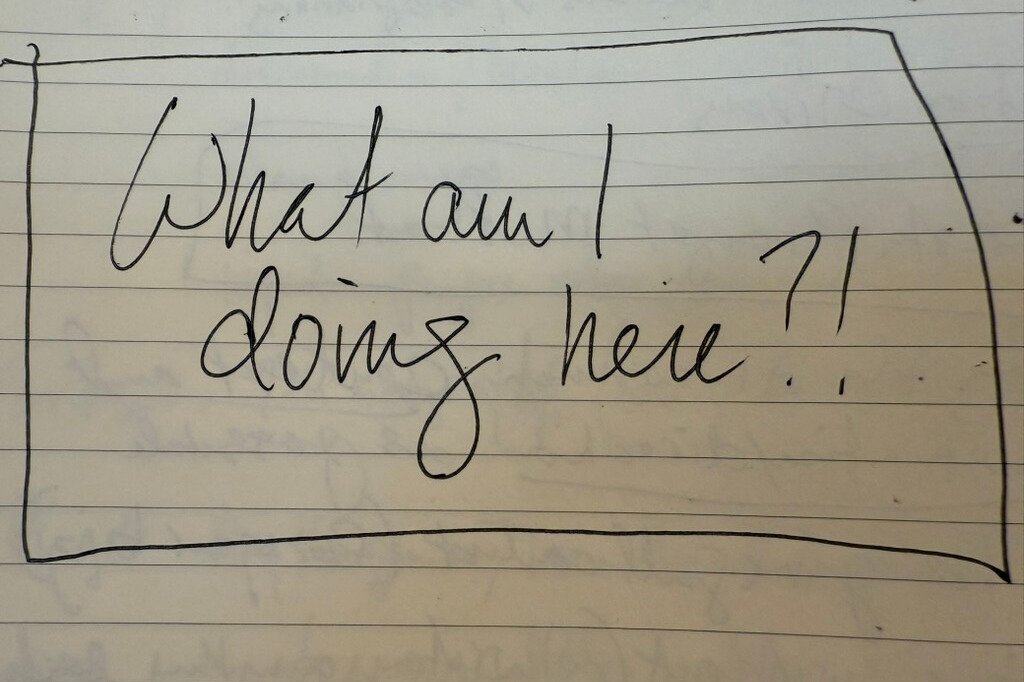 What am I
doing here?!